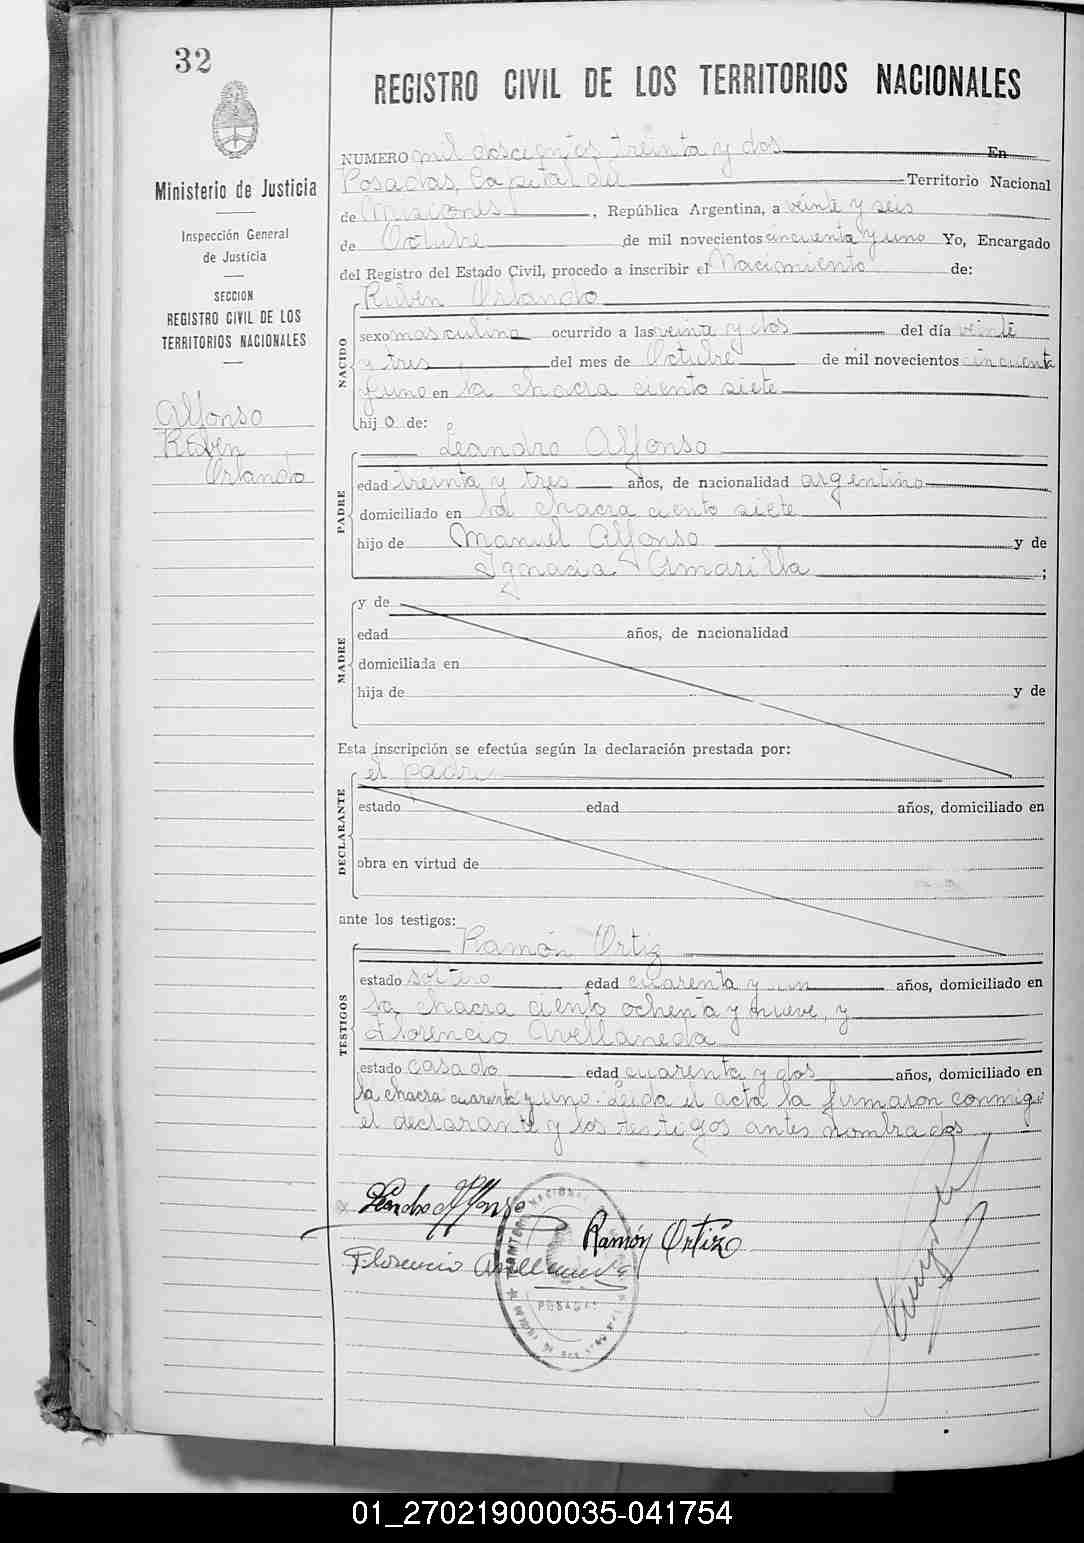 32
REGISTRO CIVIL DE LOS TERRITORIOS NACIONALES
Ministerio de Justicia
Inspección General
de Justicia
SECCION
REGISTRO CIVIL DE LOS
TERRITORIOS NACIONALES
Alfonso
Rubén
Orlando
NUMERO mil doscientos treinta y dos En
Posadas, Capital del Territorio Nacional
de Misiones, República Argentina, a veinte y seis
de Octubre de mil novecientos cincuenta y uno Yo, Encargado
del Registro del Estado Civil, procedo a inscribir el Nacimiento de:
NACIDO
Rubén Orlando
sexo masculino ocurrido a las veinte y dos del día veinte
y tres del mes de Octubre de mil novecientos cincuenta
y uno en la chacra ciento siete
hij o de:
PADRE
Leandro Alfonso
edad treinta y tres años, de nacionalidad argentino
domiciliado en la chacra ciento siete
hijo de Manuel Alfonso y de
Ignacia Amarilla ;
MADRE
y de
edad años, de nacionalidad
domiciliada en
hija de y de
Esta inscripción se efectúa según la declaración prestada por:
DECLARANTE
el padre
estado edad años, domiciliado en
obra en virtud de
ante los testigos:
TESTIGOS
Ramón Ortiz
estado soltero edad cuarenta y un años, domiciliado en
la chacra ciento ochenta y nueve, y
Florencio Avellaneda
estado casado edad cuarenta y dos años, domiciliado en
la chacra cuarenta y uno. Leida el acta la firmaron conmigo
el declarante y los testigos antes nombrados
Leandro Alfonso
Ramón Ortiz
Florencio Avellaneda
POSADAS
01_270219000035-041754